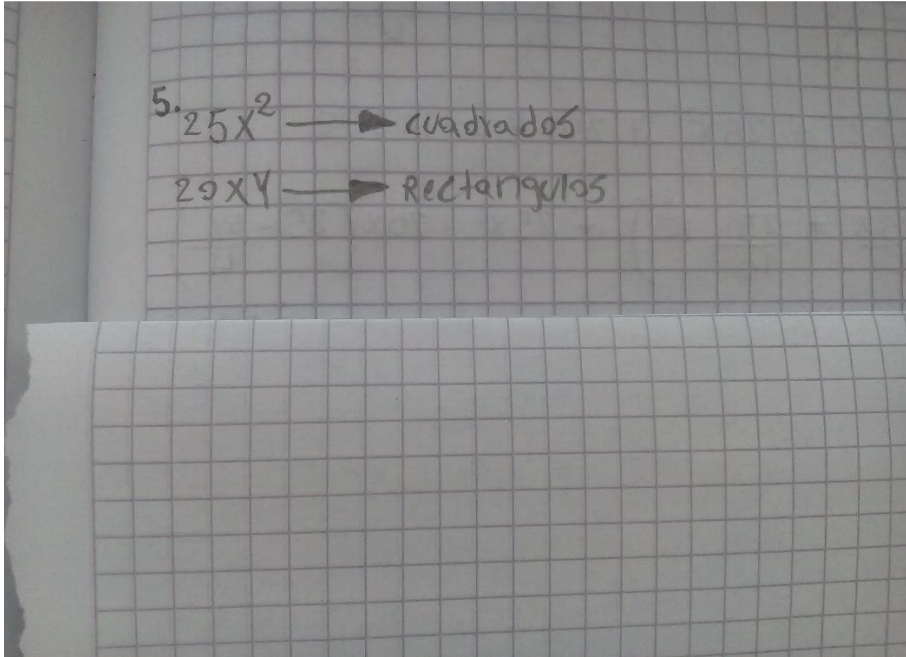 5. 25x² → cuadrados
20xy → Rectangulos